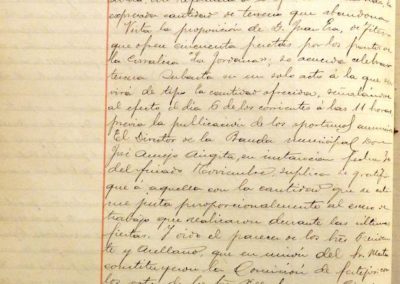 expresada cantidad de terreno que abandona.
Vista la proposición de D. Juan Era, de Fitero
que ofrece cincuenta pesetas por los pastos de
la Corraliza "La Jordana", se acuerda celebrar
tercera subasta en un solo acto á la que ser
virá de tipo la cantidad ofrecida, señalándose
al efecto el día 6 de los corrientes á las 11 horas
previa la publicación de los oportunos anuncios
El Director de la Banda municipal Don
José Amejo Angita, en instancia fecha
del finado Noviembre, suplica se gratifi
que á aquella con la cantidad que se esti
me justa proporcionalmente al exceso de
trabajo que realizaron durante las últimas
fiestas. Y oído el parecer de los Sres
y Arellano, que en unión del Sr. Mata
constituyeron la Comisión de festejos